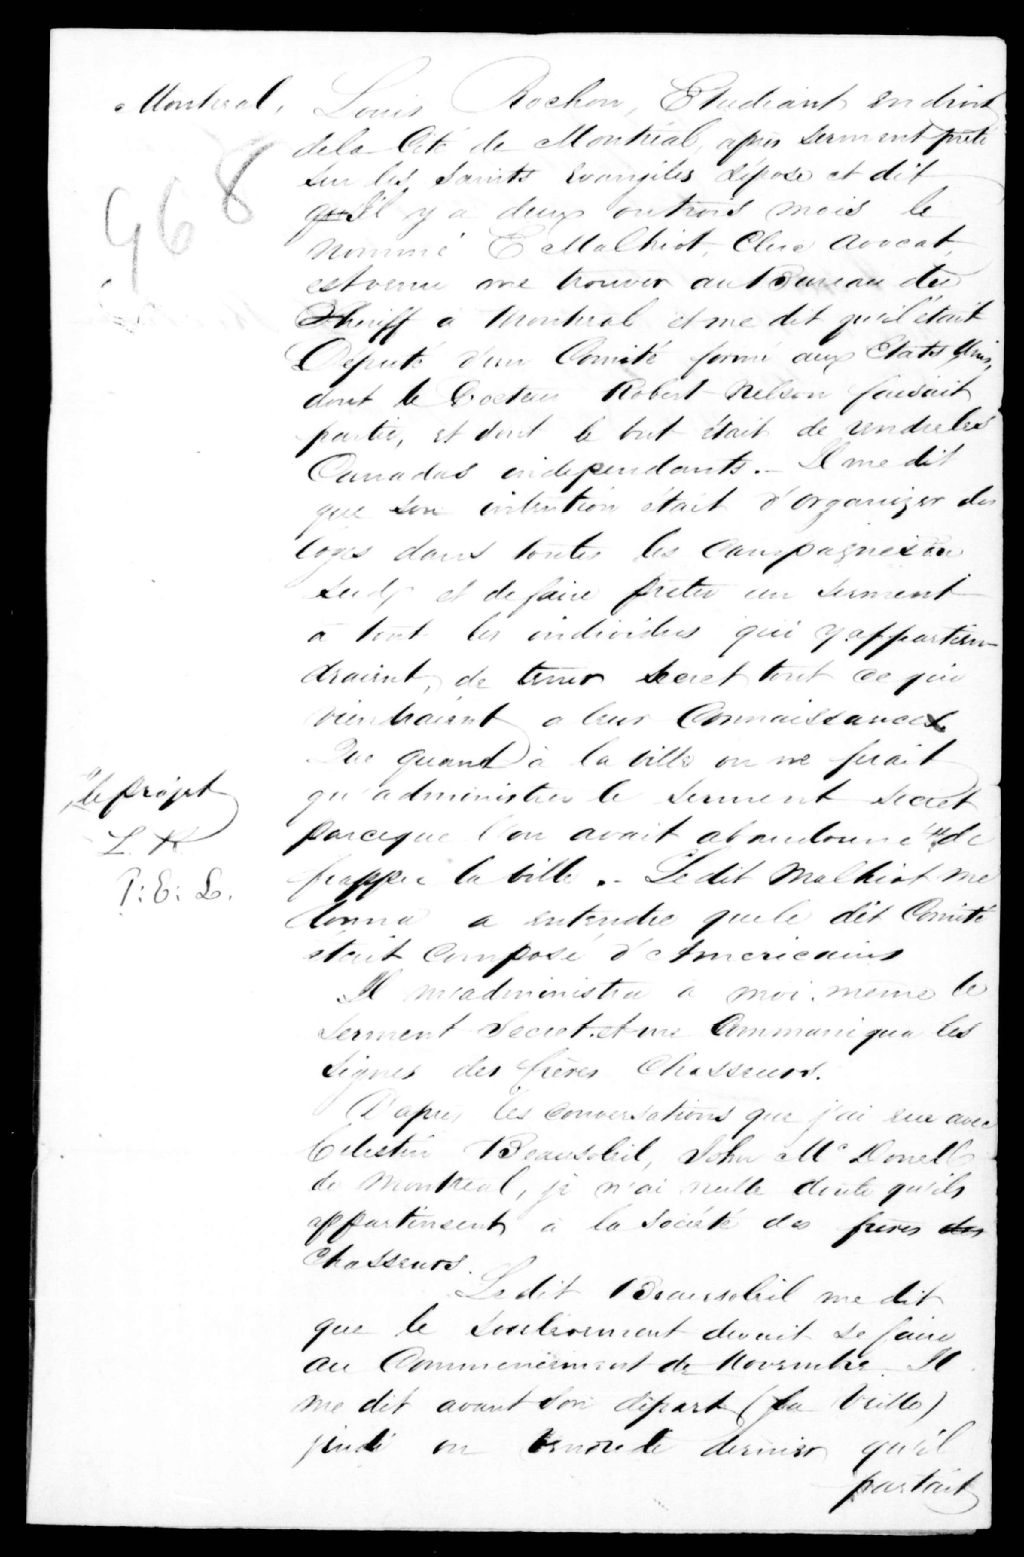 Montreal, Louis Rochon, Etudiant en droit
de la Cité de Montréal, après serment prêté
968
sur les Saints Evangiles dépose et dit
qu'il y a deux ou trois mois le
nommé E Malhiot, Clerc Avocat,
est venu me trouver au Bureau du
Sheriff a Montreal et me dit qu'il était
Deputé d'un Comité formé aux Etats Unis,
dont le Docteur Robert Nelson faisait
partie, et dont le but était de rendre les
Canadas independants. - Il me dit
que son intention était d'organizer des
loges dans toutes les Campagnes du
Sud, et de faire preter un serment
a tout les individus qui y appartien-
draient, de tenir secret tout ce qui
viendraient a leur Connaissances.
Que quand à la ville on ne ferait
qu'administrer le serment secret
parceque l'on avait abandonné de
le projet
L. R
P: E: L.
frapper la ville. - Le dit Malhiot me
donna a entendre que le dit Comité
était composé d'Americains
Il m'administra a moi-meme le
serment secret et me Communiqua les
signes des frères Chasseurs.
D'après les conversations que j'ai eue avec
Celestin Beausoleil, John McDonell
de Montreal, je n'ai nulle doute qu'ils
appartinsent à la Société des frères des
Chasseurs.
Le dit Beausoleil me dit
que le soulèvement devait se faire
au Commencement de Novembre. Il
me dit avant son départ (la veille)
jeudi ou dernier qu'il
partait